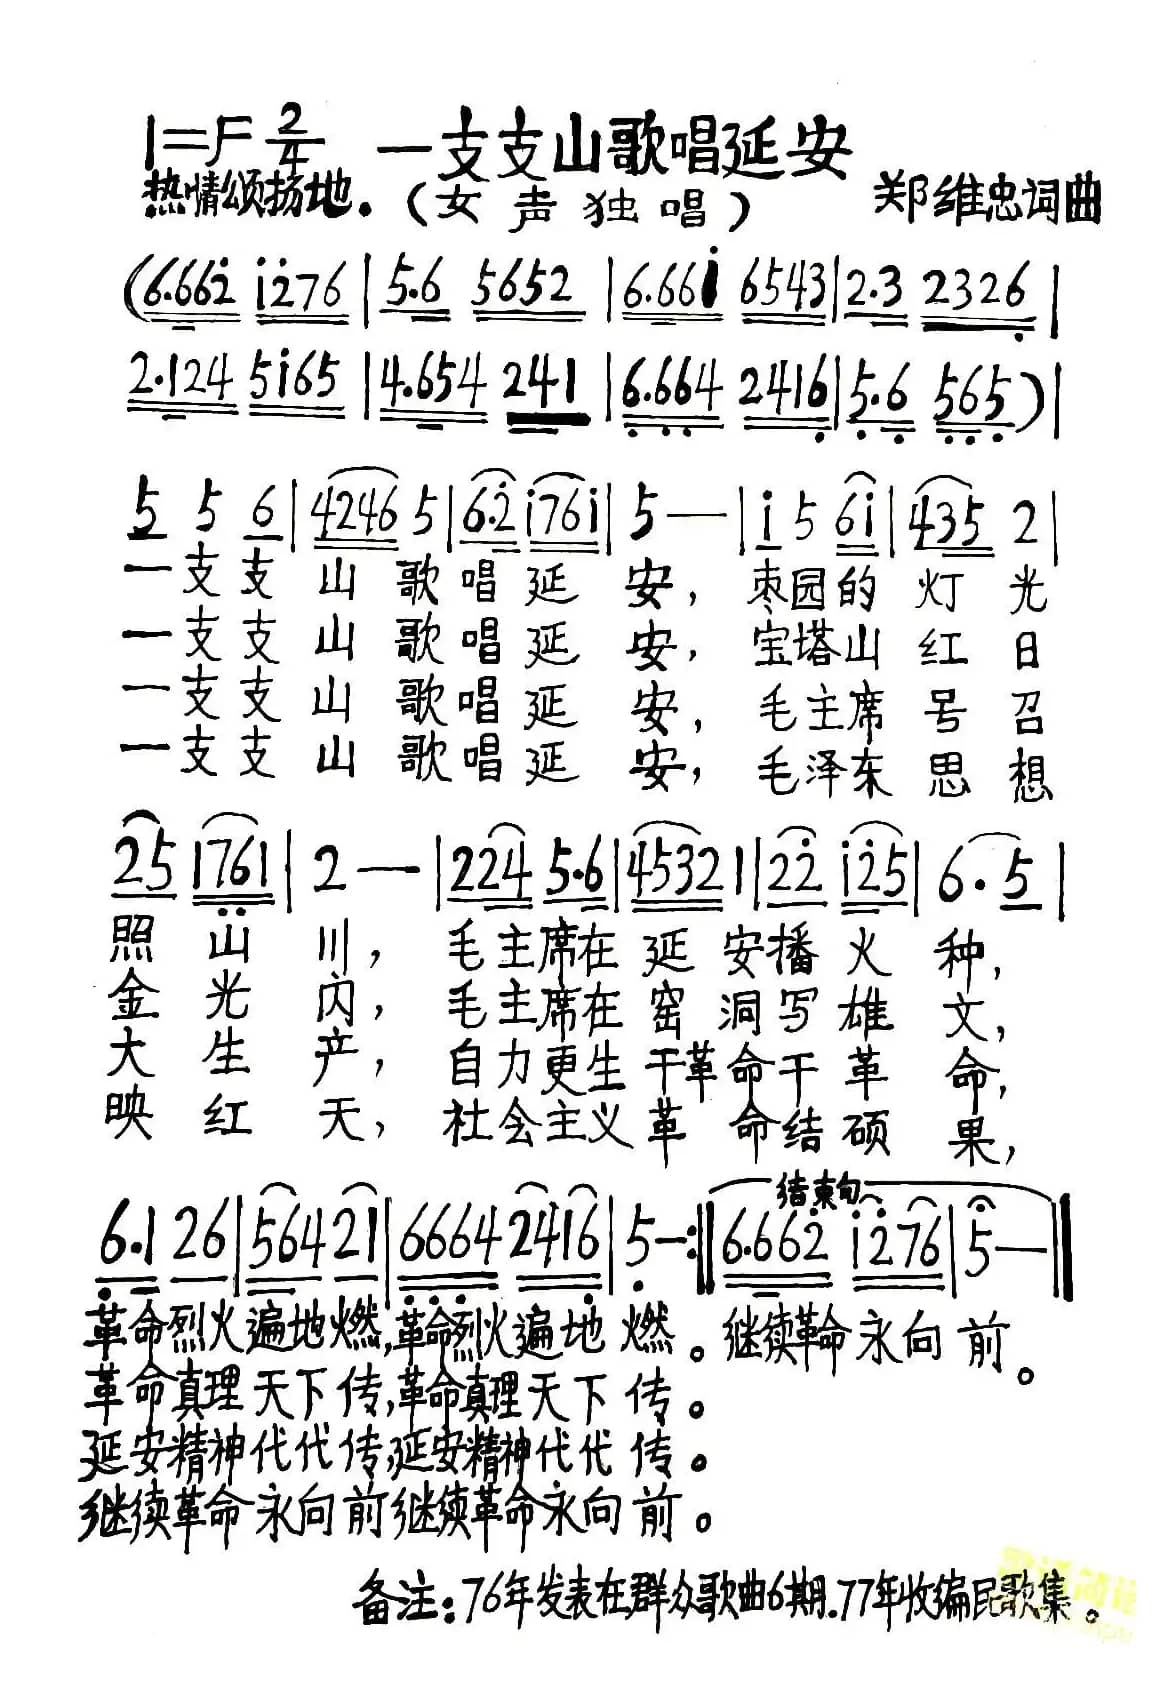 1=F 2/4 一支支山歌唱延安
热情颂扬地. (女声独唱) 郑维忠词曲
(6.662 1276 | 5.6 5652 | 6.661 6543 | 2.3 2326 |
2.124 5165 | 4.654 241 | 6.664 2416 | 5.6 565) |
5 5 6 | 4246 5 | 6.2 1761 | 5 — | 1 5 61 | 435 2 |
一支支山歌唱延安，枣园的灯光
一支支山歌唱延安，宝塔山红日
一支支山歌唱延安，毛主席号召
一支支山歌唱延安，毛泽东思想
25 1761 | 2 — | 224 5.6 | 4532 1 | 22 125 | 6. 5 |
照山川，毛主席在延安播火种，
金光闪，毛主席在窑洞写雄文，
大生产，自力更生干革命干革命，
映红天，社会主义革命结硕果，
结束句
6.1 26 | 564 21 | 6664 2416 | 5 — :‖ 6.662 1276 | 5 — ‖
革命烈火遍地燃，革命烈火遍地燃。继续革命永向前。
革命真理天下传，革命真理天下传。
延安精神代代传，延安精神代代传。
继续革命永向前继续革命永向前。
备注：76年发表在群众歌曲6期.77年收编民歌集。